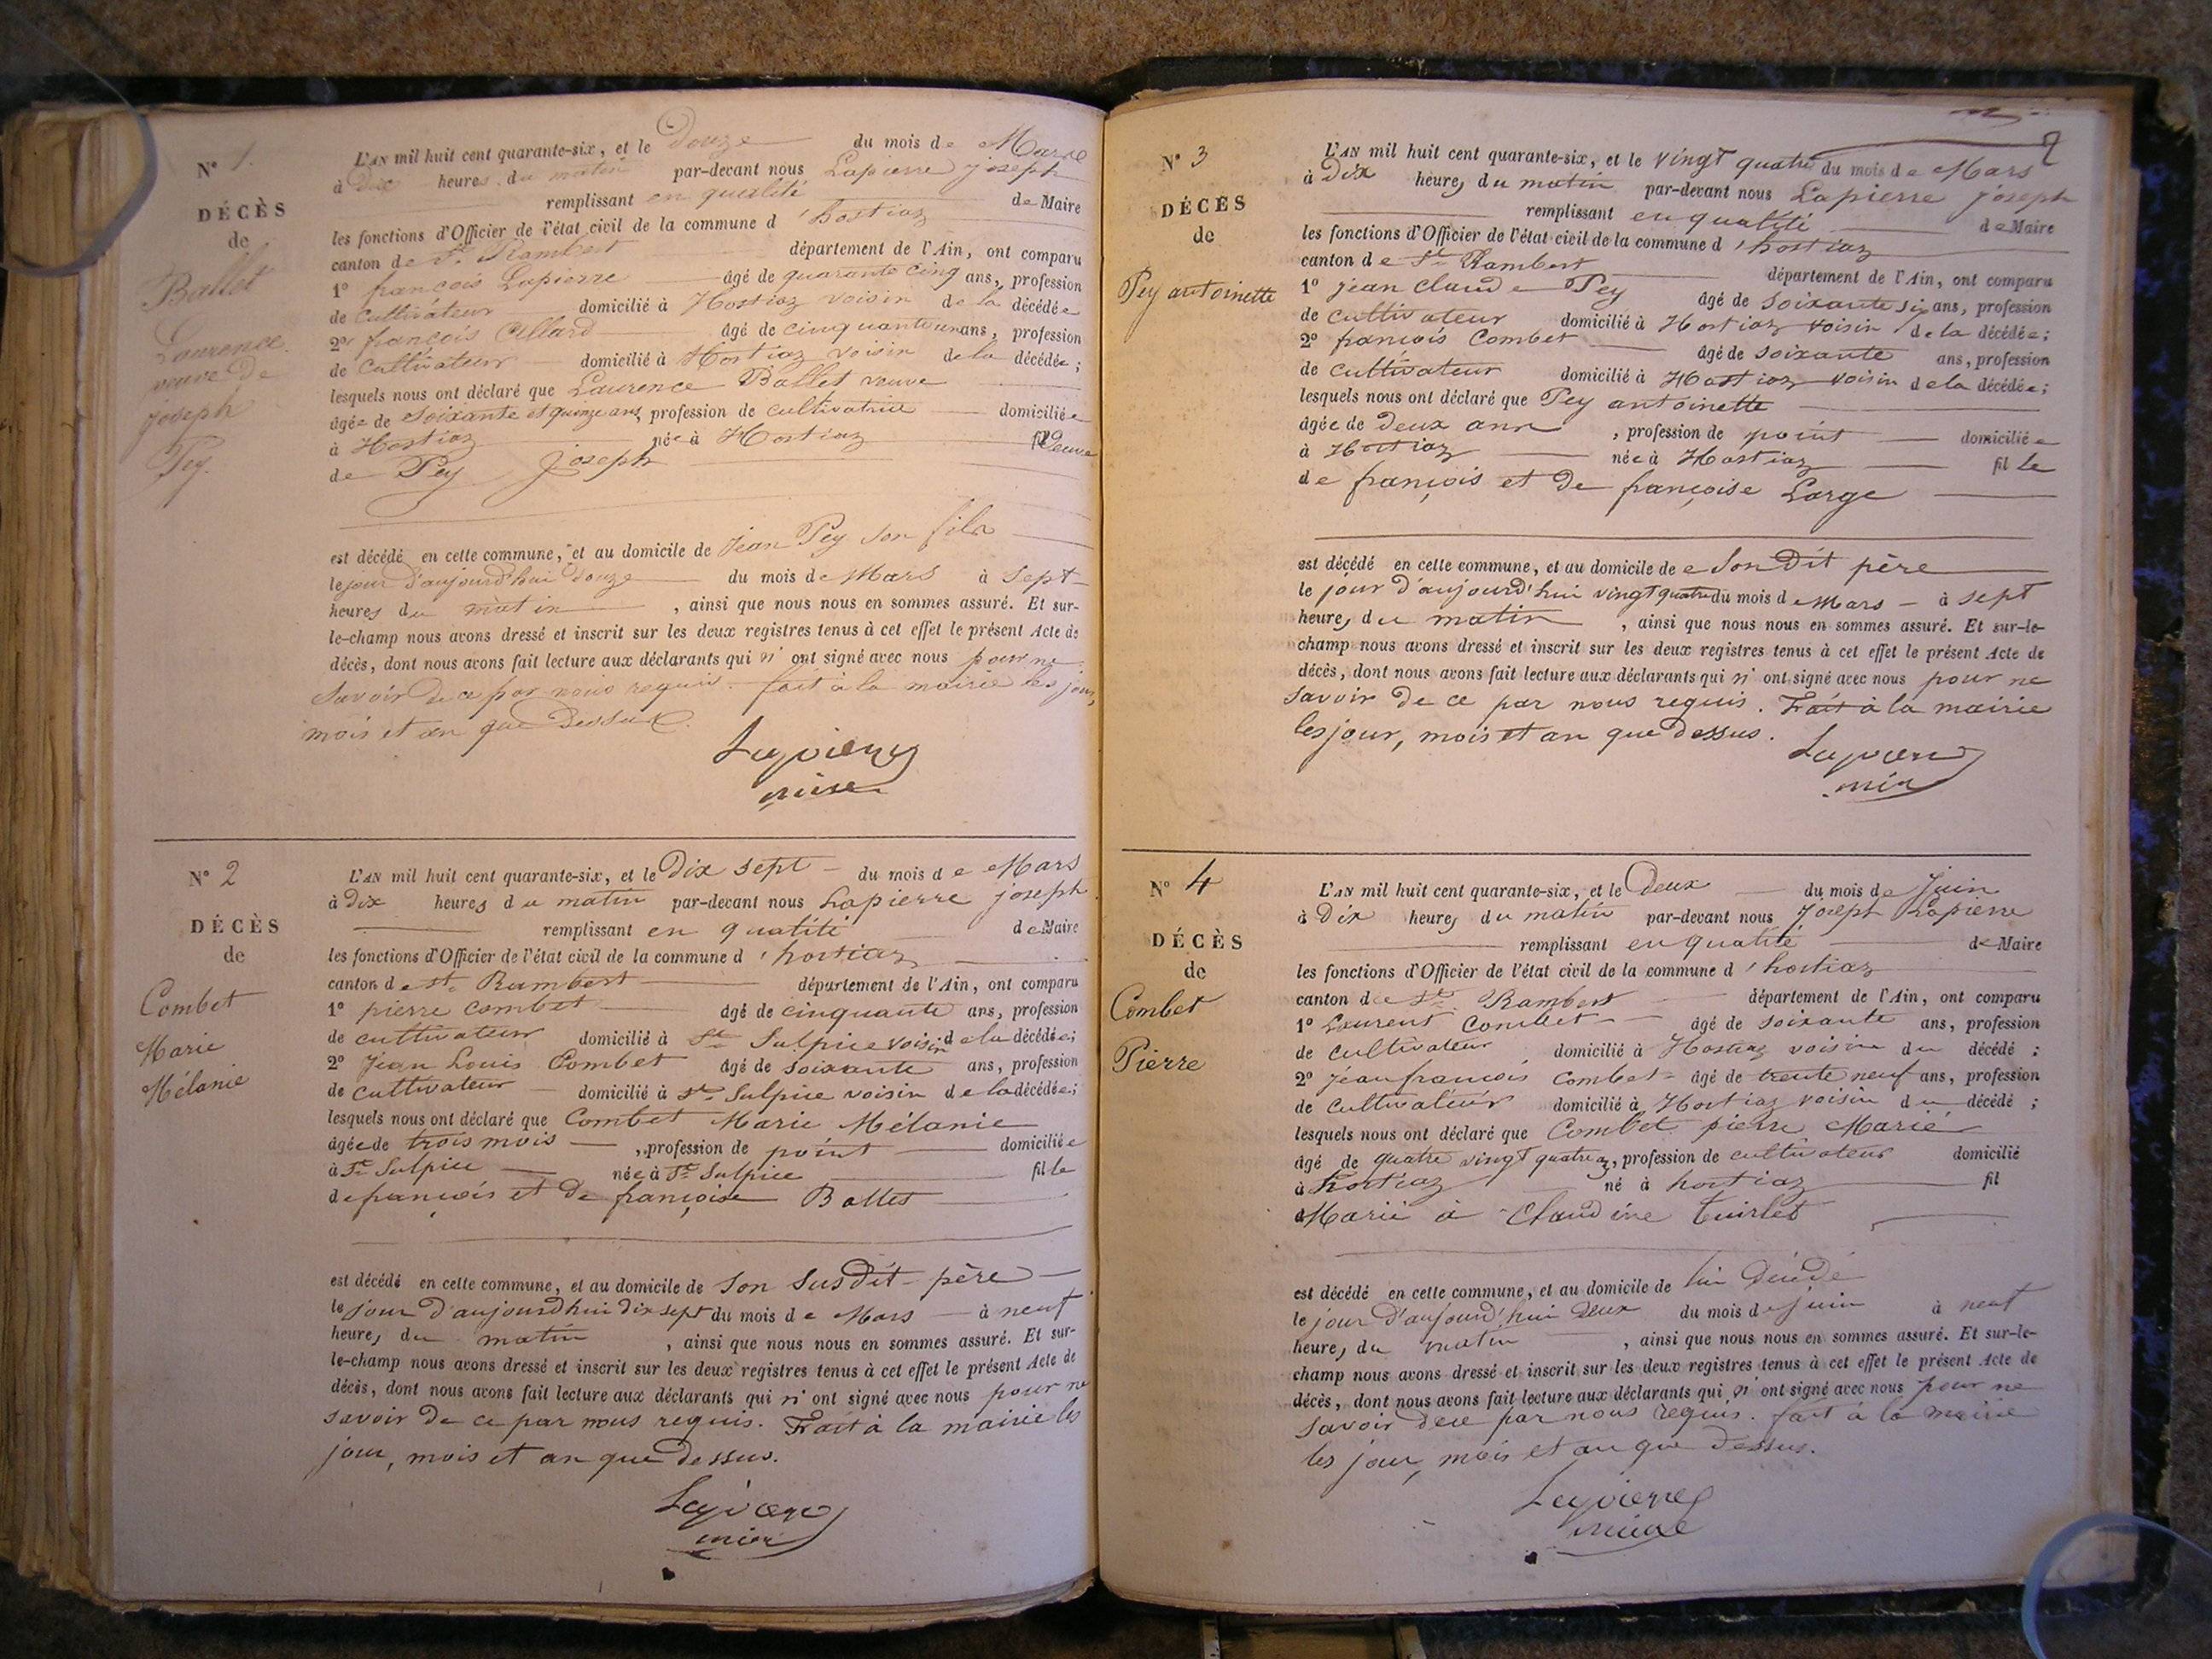 N° 1.
DÉCÈS
de
Ballet
Laurence
veuve de
joseph
Pey.
L'AN mil huit cent quarante-six, et le Douze du mois de Mars
à Dix heures du matin par-devant nous Lapierre joseph
remplissant en qualité de Maire
les fonctions d'Officier de l'état civil de la commune d'hostiaz
canton de St. Rambert département de l'Ain, ont comparu
1° françois Lapierre âgé de quarante cinq ans, profession
de cultivateur domicilié à Hostiaz voisin de la décédée
2° françois Allard âgé de cinquante un ans, profession
de cultivateur domicilié à Hostiaz voisin de la décédée;
lesquels nous ont déclaré que Laurence Ballet veuve
âgée de soixante et quinze ans, profession de cultivatrice domiciliée
à Hostiaz née à Hostiaz veuve
de Pey Joseph
est décédé en cette commune, et au domicile de Jean Pey son fils
le jour d'aujourd'hui Douze du mois de Mars à sept
heures du matin, ainsi que nous nous en sommes assuré. Et sur-
le-champ nous avons dressé et inscrit sur les deux registres tenus à cet effet le présent Acte de
décès, dont nous avons fait lecture aux déclarants qui n'ont signé avec nous pour ne
savoir de ce par nous requis. fait à la mairie les jour,
mois et an que Dessus.
Lapierre
mire
N° 2
DÉCÈS
de
Combet
Marie
Mélanie
L'AN mil huit cent quarante-six, et le Dix sept du mois de Mars
à Dix heures du matin par-devant nous Lapierre joseph
remplissant en qualité de Maire
les fonctions d'Officier de l'état civil de la commune d'hostiaz
canton de st. Rambert département de l'Ain, ont comparu
1° pierre combet âgé de cinquante ans, profession
de cultivateur domicilié à St Sulpice voisin de la décédée;
2° Jean Louis Combet âgé de soixante ans, profession
de cultivateur domicilié à St Sulpice voisin de la décédée;
lesquels nous ont déclaré que Combet Marie Mélanie
âgée de trois mois, profession de point domiciliée
à St Sulpice née à St Sulpice fille
de françois et de françoise Ballet
est décédé en cette commune, et au domicile de son susdit père
le jour d'aujourd'hui dix sept du mois de Mars à neuf
heures du matin, ainsi que nous nous en sommes assuré. Et sur-
le-champ nous avons dressé et inscrit sur les deux registres tenus à cet effet le présent Acte de
décès, dont nous avons fait lecture aux déclarants qui n'ont signé avec nous pour ne
savoir de ce par nous requis. Fait à la mairie les
jour, mois et an que dessus.
Lapierre
2
N° 3
DÉCÈS
de
Pey antoinette
L'AN mil huit cent quarante-six, et le vingt quatre du mois de Mars
à Dix heures du matin par-devant nous Lapierre joseph
remplissant en qualité de Maire
les fonctions d'Officier de l'état civil de la commune d'hostiaz
canton de St Rambert département de l'Ain, ont comparu
1° jean claude Pey âgé de soixante six ans, profession
de cultivateur domicilié à Hostiaz voisin de la décédée;
2° françois Combet âgé de soixante ans, profession
de cultivateur domicilié à Hostiaz voisin de la décédée;
lesquels nous ont déclaré que Pey antoinette
âgée de deux ans, profession de point domiciliée
à Hostiaz née à Hostiaz fille
de françois et de françoise Large
est décédé en cette commune, et au domicile de son Dit père
le jour d'aujourd'hui vingt quatre du mois de Mars à sept
heures du matin, ainsi que nous nous en sommes assuré. Et sur-le-
champ nous avons dressé et inscrit sur les deux registres tenus à cet effet le présent Acte de
décès, dont nous avons fait lecture aux déclarants qui n'ont signé avec nous pour ne
savoir de ce par nous requis. Fait à la mairie
les jour, mois et an que dessus.
Lapierre
N° 4
DÉCÈS
de
Combet
Pierre
L'AN mil huit cent quarante-six, et le Deux du mois de Juin
à Dix heures du matin par-devant nous joseph Lapierre
remplissant en qualité de Maire
les fonctions d'Officier de l'état civil de la commune d'hostiaz
canton de St Rambert département de l'Ain, ont comparu
1° Laurent Combet âgé de soixante ans, profession
de cultivateur domicilié à Hostiaz voisin du décédé;
2° jean françois Combet âgé de trente neuf ans, profession
de cultivateur domicilié à Hostiaz voisin du décédé;
lesquels nous ont déclaré que Combet pierre Marie
âgé de quatre vingt quatre a, profession de cultivateur domicilié
à hostiaz né à hostiaz fil
Marié à Claudine
est décédé en cette commune, et au domicile de lui Décédé
le jour d'aujourd'hui deux du mois de juin à neuf
heures du matin, ainsi que nous nous en sommes assuré. Et sur-le-
champ nous avons dressé et inscrit sur les deux registres tenus à cet effet le présent Acte de
décès, dont nous avons fait lecture aux déclarants qui n'ont signé avec nous pour ne
savoir de ce par nous requis. fait à la mairie
les jour, mois et an que Dessus.
Lapierre